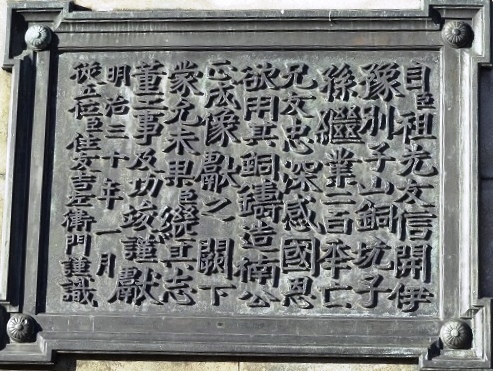 自臣祖先友信開伊
豫別子山銅坑子
孫繼業二百秊亡
兄友忠深感國恩
欲用其銅鑄造楠公
正成像獻之闕下
蒙允未果臣繼其志
董工事及功竣謹獻
明治三十年一月
從五位臣住友吉左衛門謹識